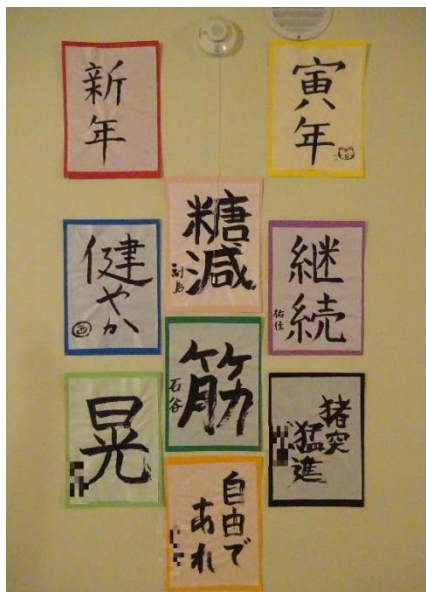 新年
寅年
糖減
副島
健やか
継続
祐佳
筋
石谷
晃
猪突
猛進
自由で
あれ